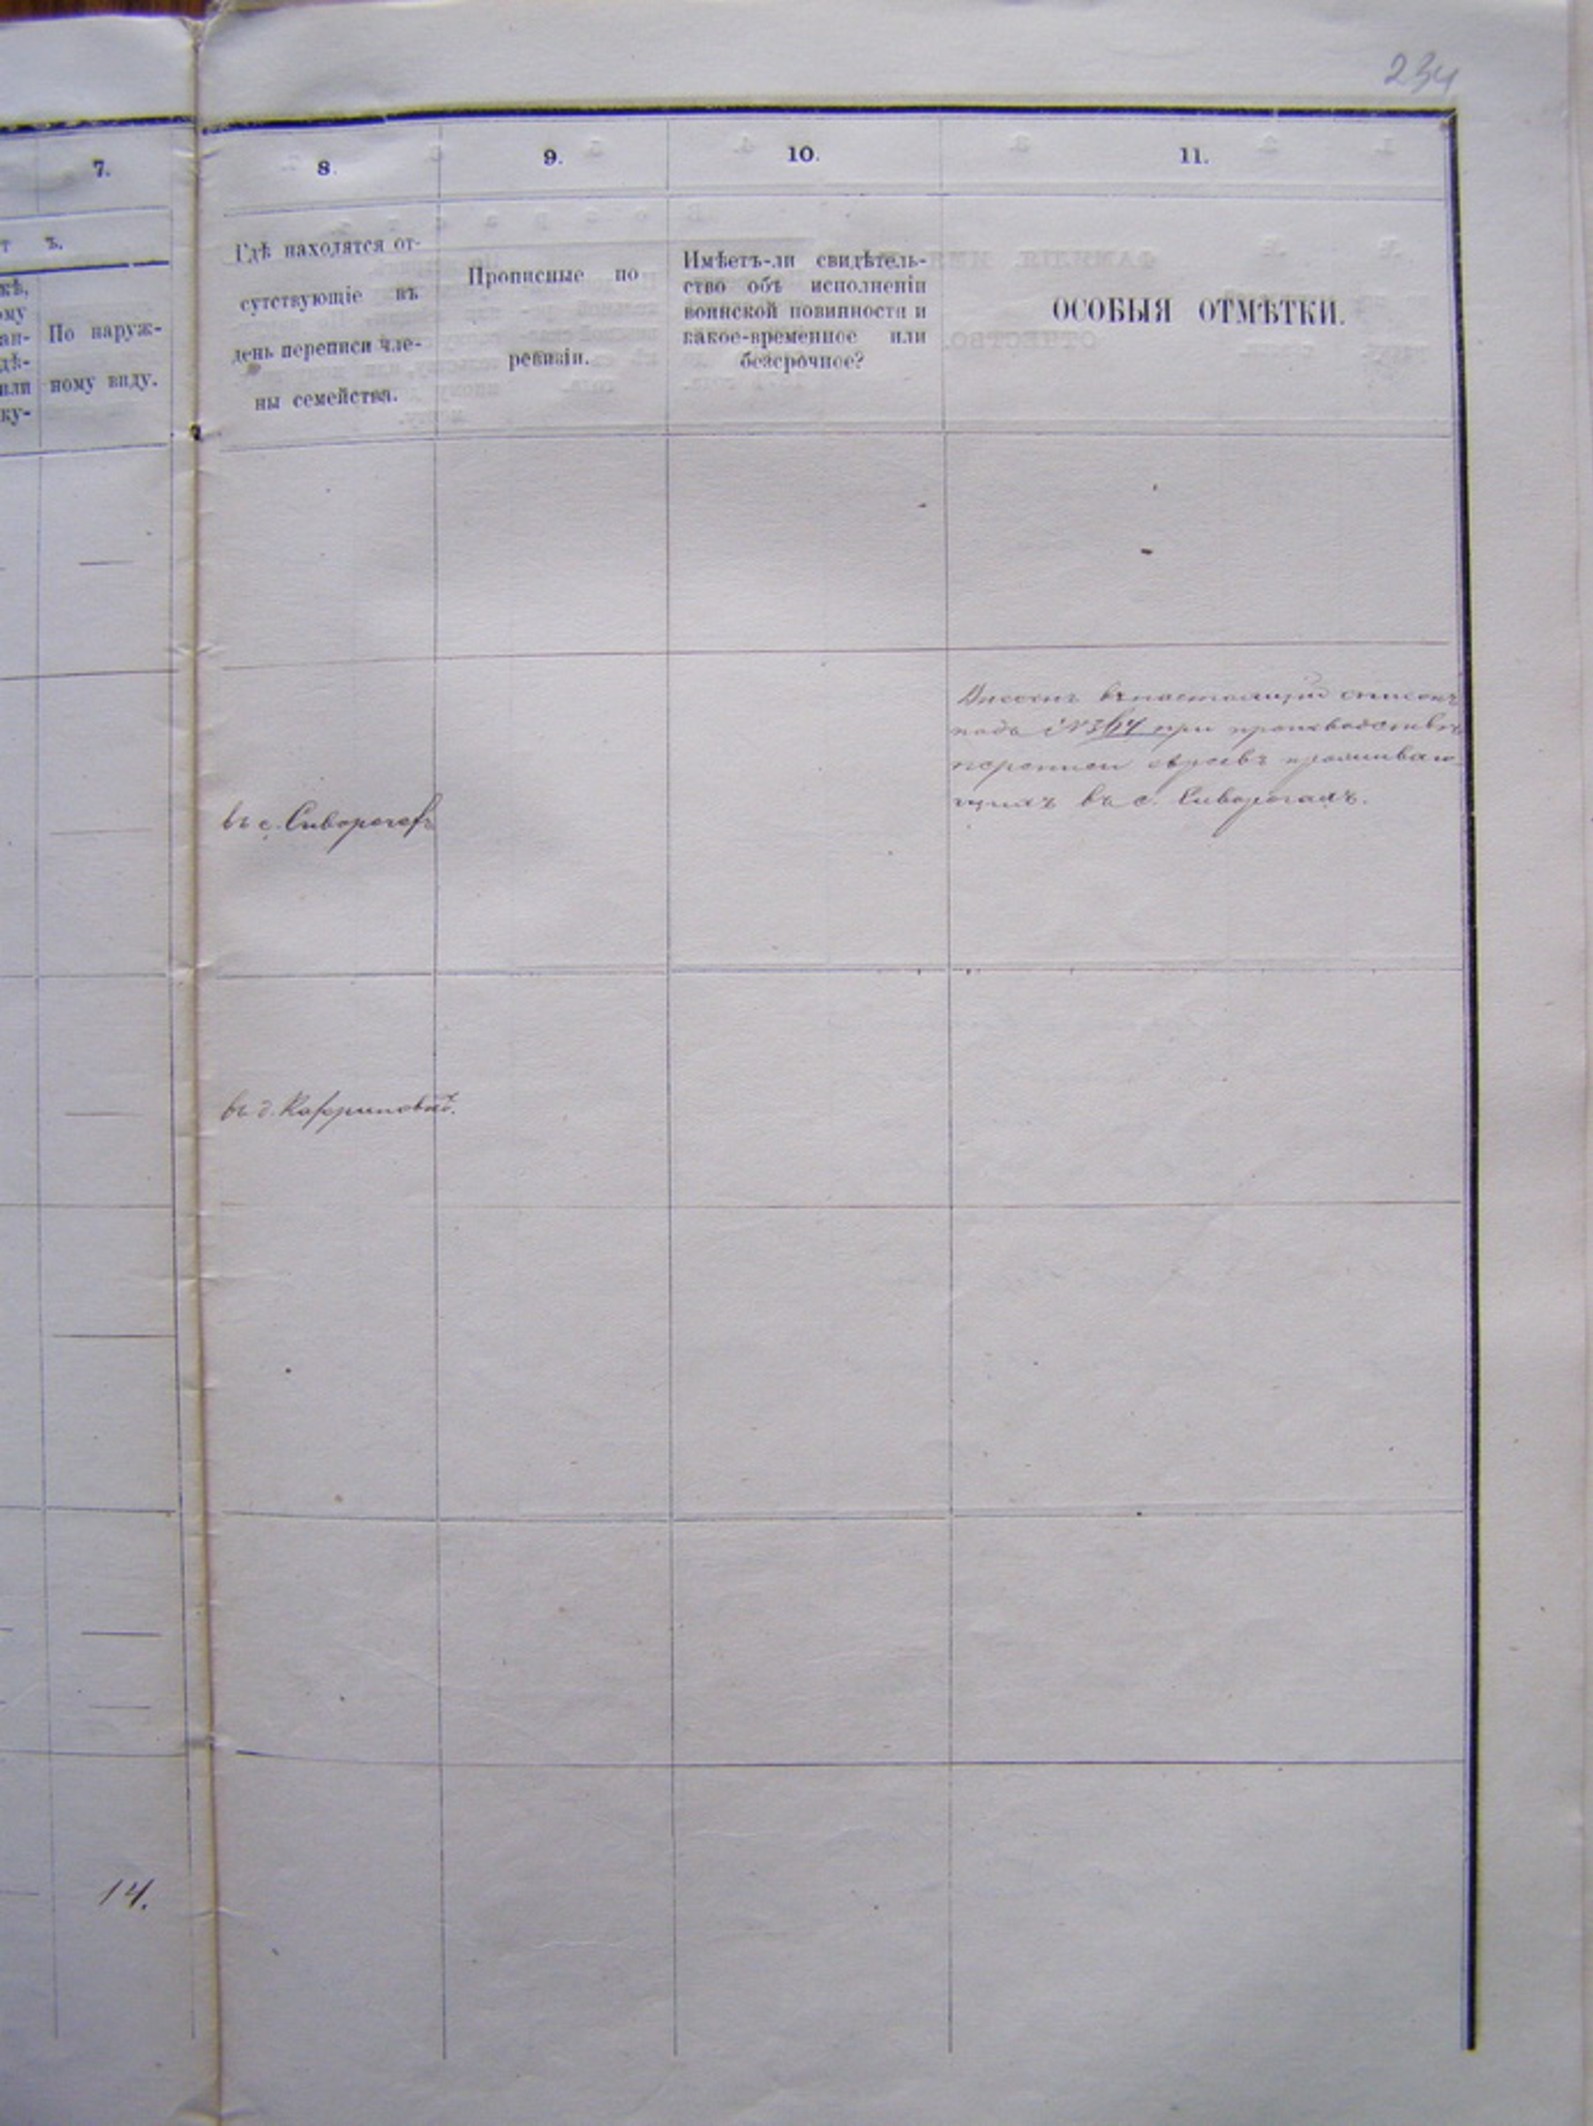 234
7.
8.
9.
10.
11.
т ъ.
кѣ,
ому
ан-
дѣ-
или
ку-
По наруж-
ному виду.
Гдѣ находятся от-
сутствующіе въ
день переписи чле-
ны семейства.
Прописные по
ревизіи.
Имѣетъ-ли свидѣтель-
ство объ исполненіи
воинской повинности и
какое-временное или
безсрочное?
ОСОБЫЯ ОТМѢТКИ.
въ настоящій список
подъ № 364 при производствѣ
переписи евреевъ проживаю-
щихъ въ с. Сиворогахъ.
въ с.
въ д.
14.